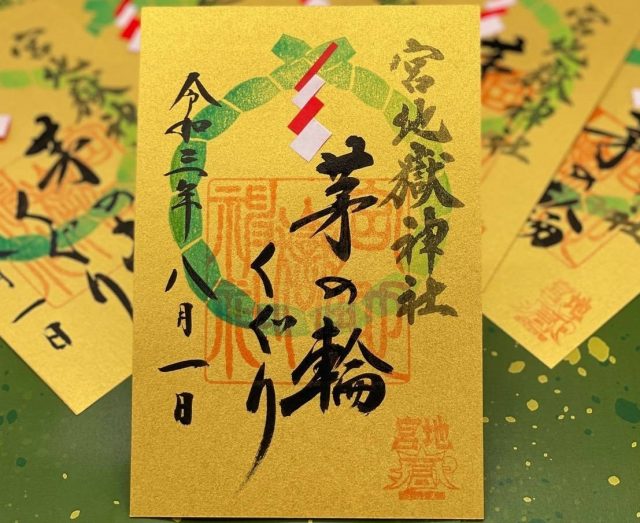 宮地嶽神社
茅の輪
くぐり
令和三年 八月一日